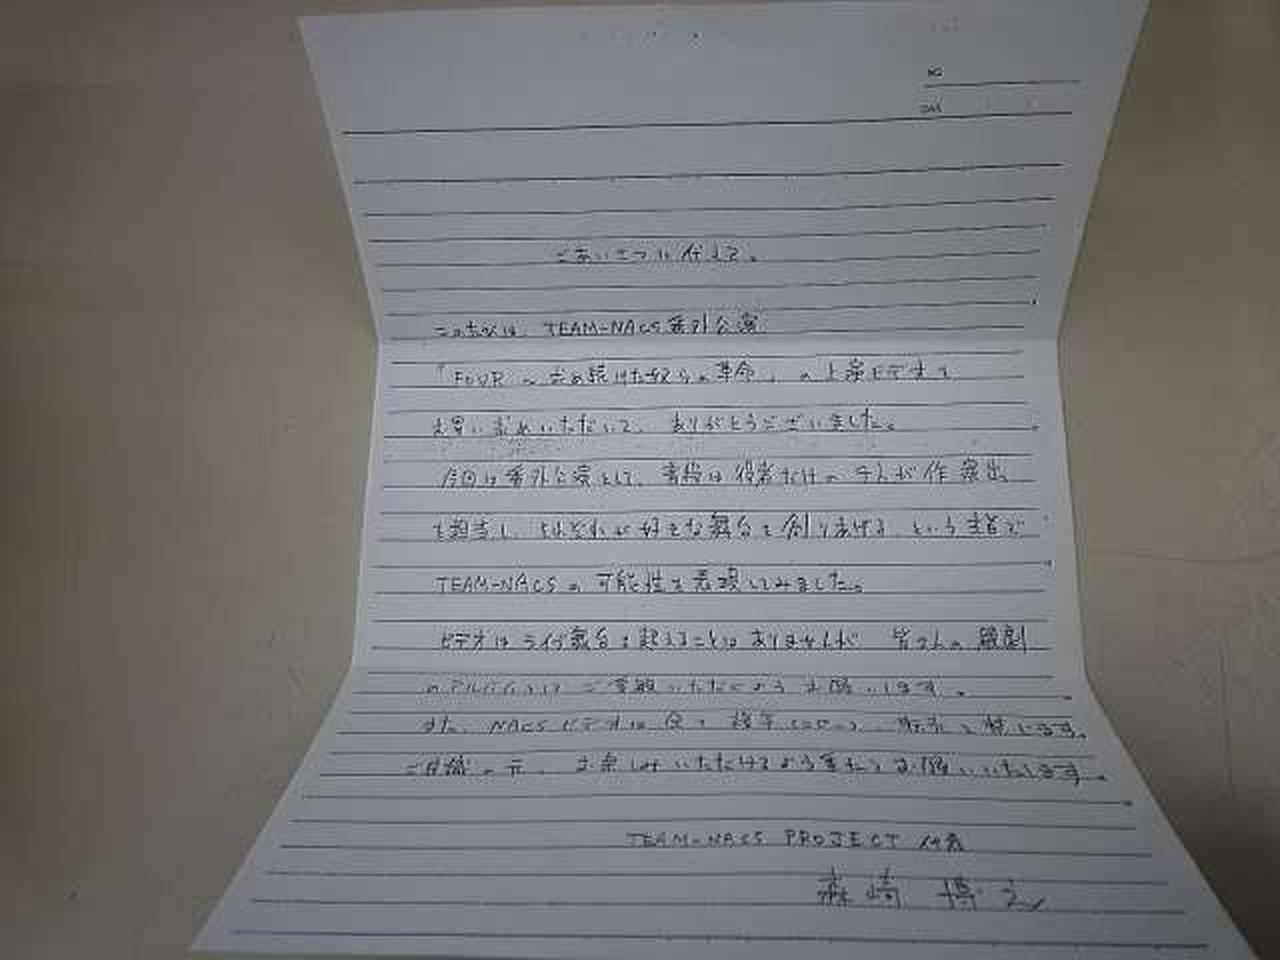 NO.
DATE
ごあいさつに代えて。
このたびは、TEAM-NACS番外公演
「FOUR～求め続けた奴らの革命」の上演ビデオを
お買い求めいただいて、ありがとうございました。
今回は番外公演として、普段は役者だけの が作・演出
を担当し、それぞれが好きな舞台を創りあげる、という主旨で
TEAM-NACSの可能性を表現してみました。
ビデオはライブ舞台を超えることはありませんが、皆さんの観劇
のアルバムとして ご覧いただくようお願いします。
また、NACSビデオは 転売を禁じます。
の元、お楽しみいただけるよう重ねてお願いいたします。
TEAM-NACS PROJECT 代表
森崎 博之